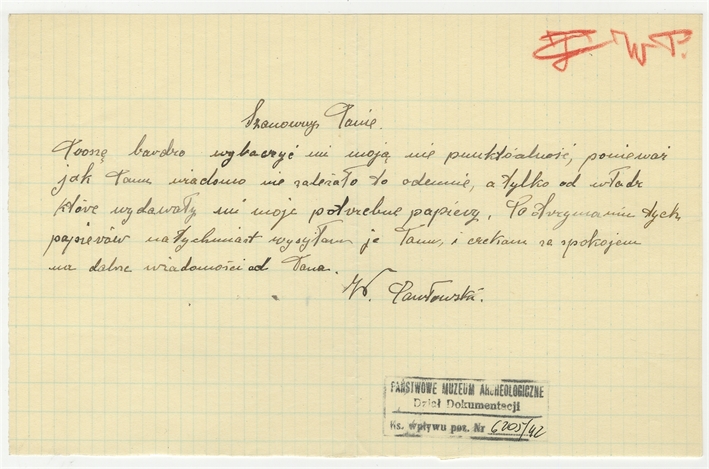 W. P.
Szanowny Panie.
Proszę bardzo wybaczyć mi moją nie punktóalność, ponieważ
jak Panu wiadomo nie zależało to odemnie, a tylko od władz
które wydawały mi moje potrzebne papiery. Po otrzymaniu tych
papierów natychmiast wysyłam je Panu, i czekam ze spokojem
na dalsze wiadomości od Pana.
W. Pawłowski.
PAŃSTWOWE MUZEUM ARCHEOLOGICZNE
Dział Dokumentacji
Ks. wpływu poz. Nr 6205/42